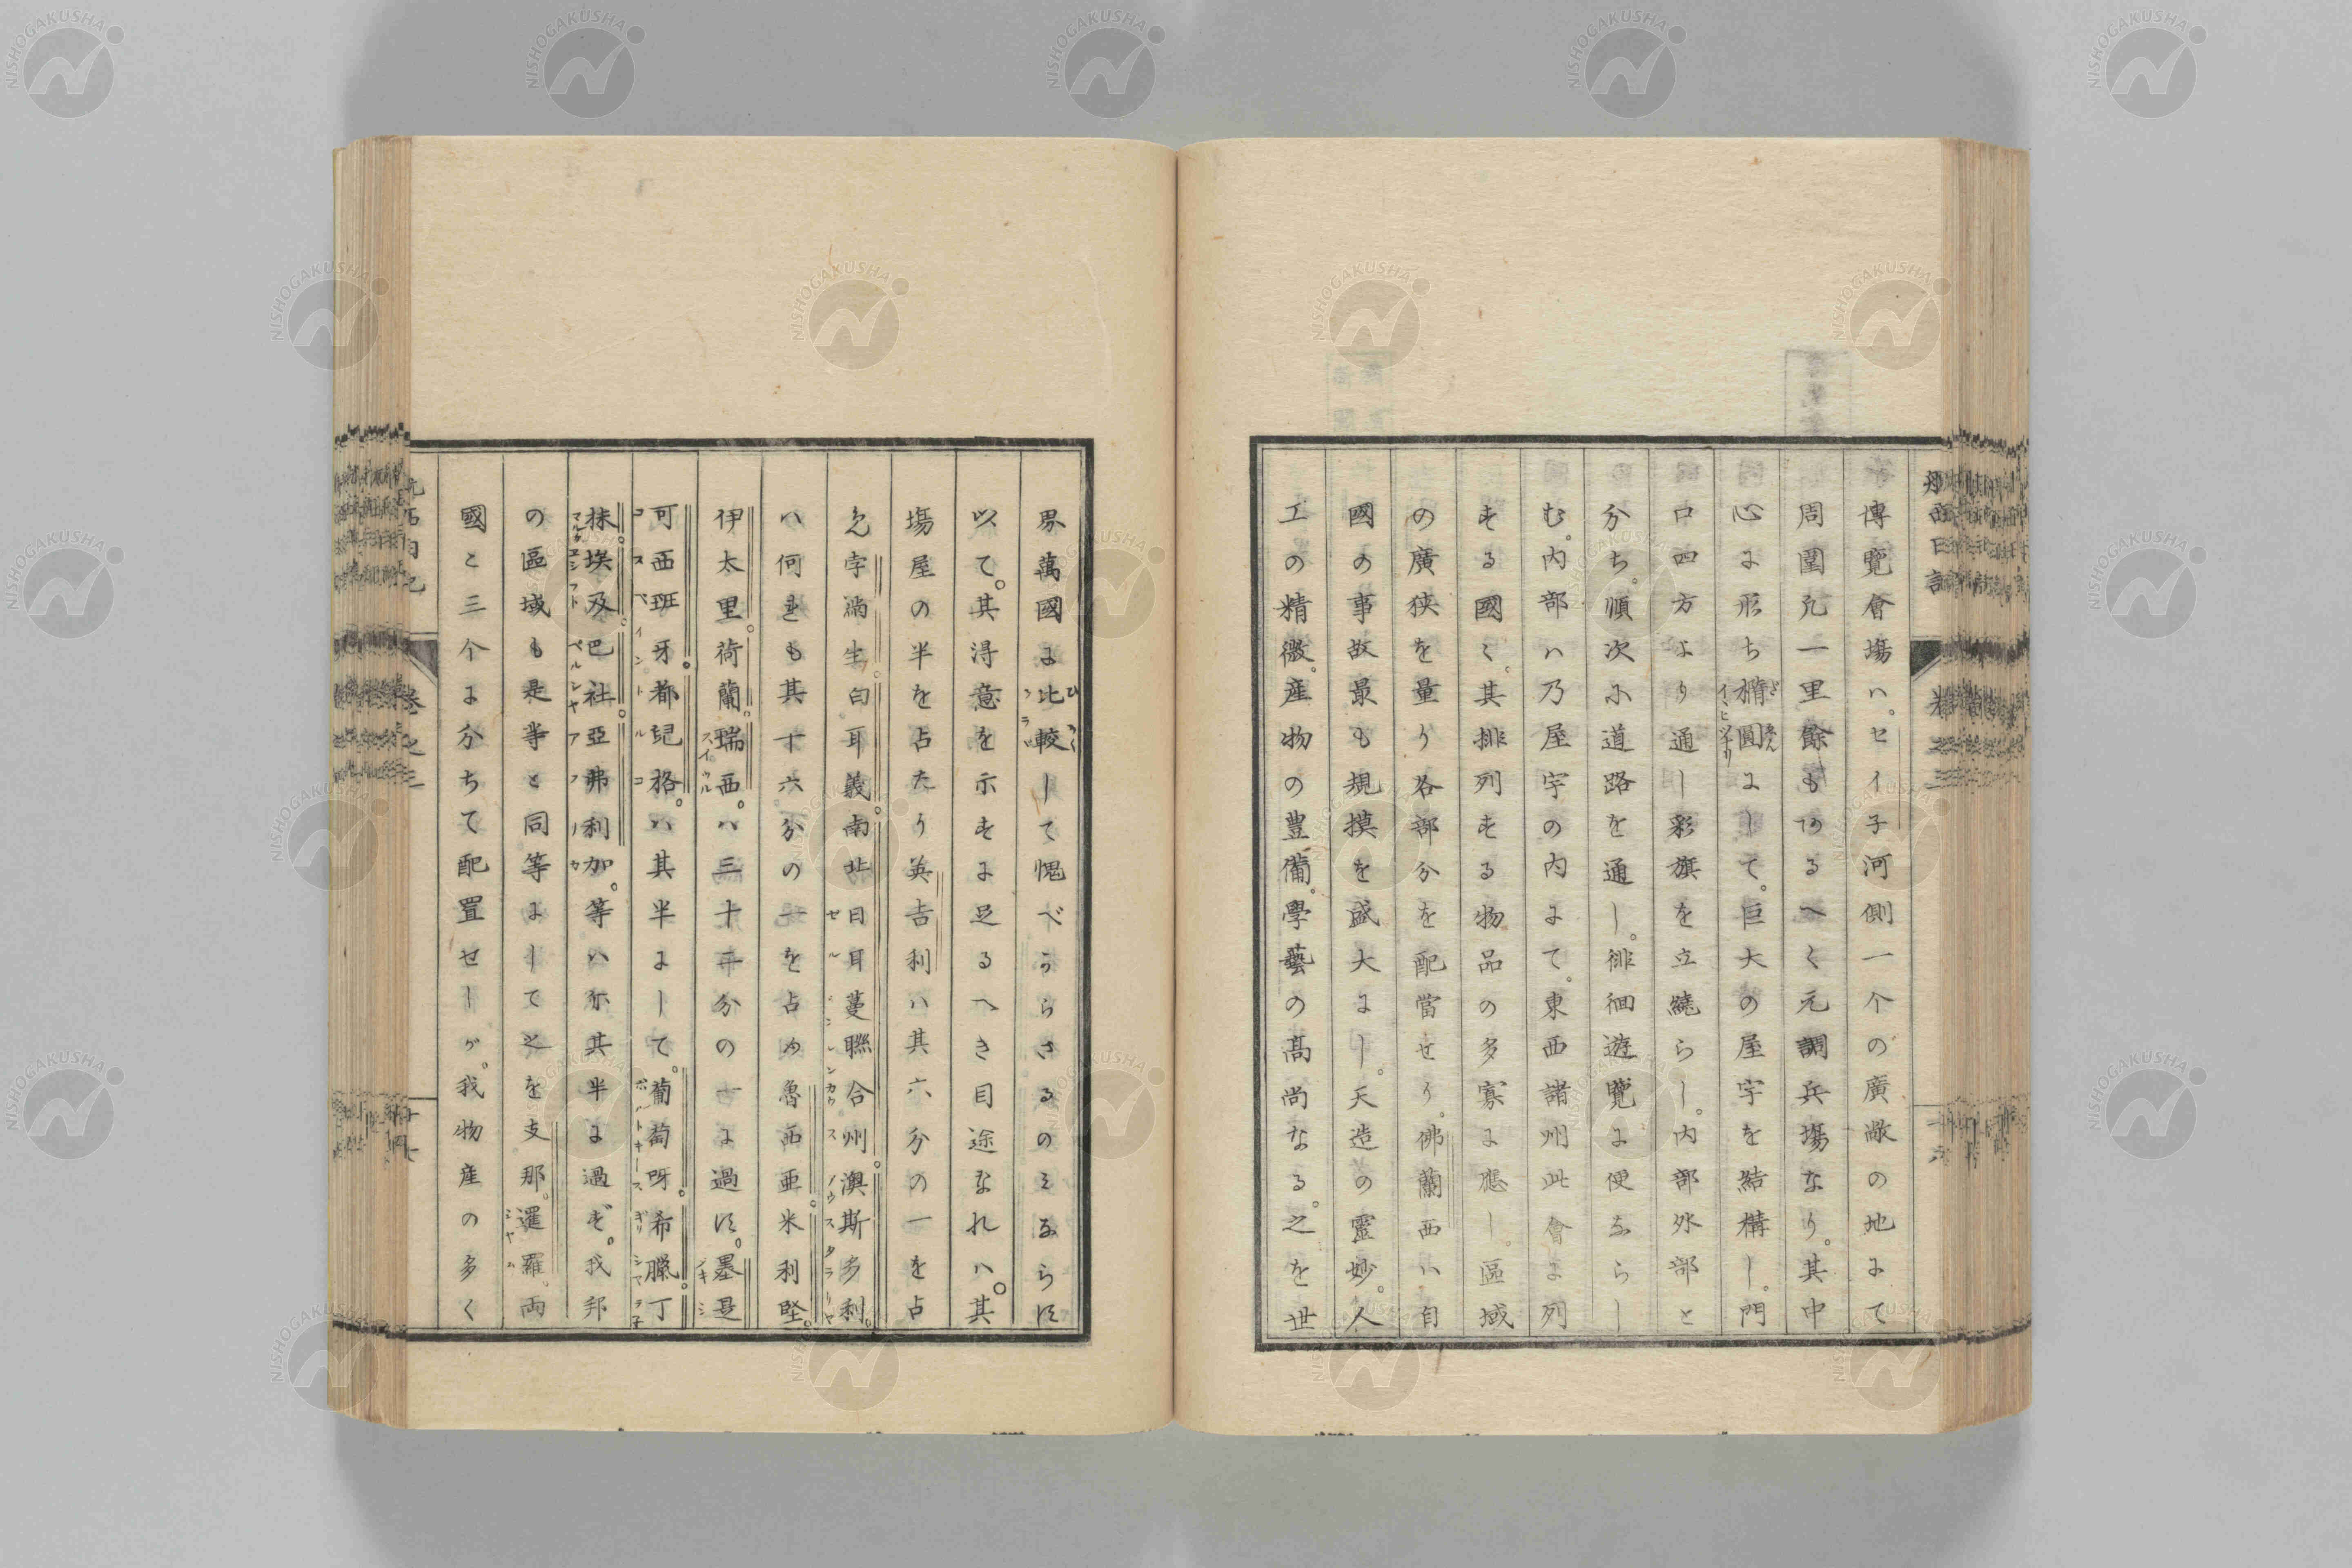 航西日記
卷之三
十六
博覽會塲ハ。セイ子河側一个の廣敞の地にて
周圍凡一里餘もあるへく元調兵塲なり。其中
心に形ち楕圓にして。巨大の屋宇を結構し。門
口四方より通し彩旗を立繞らし。内部外部と
分ち。順次に道路を通し。徘徊遊覽に便ならし
む。内部ハ乃屋宇の内にて。東西諸州此會に列
する國く。其排列する物品の多寡に應し。區域
の廣狭を量り各部分を配當せり。佛蘭西ハ自
國の事故最も規摸を盛大にし。天造の靈妙。人
工の精微。産物の豊備。學藝の髙尚なる。之を世
界萬國に比較して愧べからさるのミならす
以て。其得意を示すに足るへき目途なれハ。其
塲屋の半を占たり英吉利ハ其六分の一を占
め字漏生。白耳義。南北日耳蔓聯合州。澳斯多利。
ハ何れも其十六分の一を占め魯西亜。米利堅。
伊太里。荷蘭。瑞西。ハ三十弄分の一に過す。墨是
可西班牙。都兒格。ハ其半にして。葡萄呀。希臘。丁
抹。埃及。巴社。亞弗利加。等ハ亦其半に過ず。我邦
の區域も是等と同等にして之を支那。暹羅。両
國と三个に分ちて配置せしが。我物産の多く